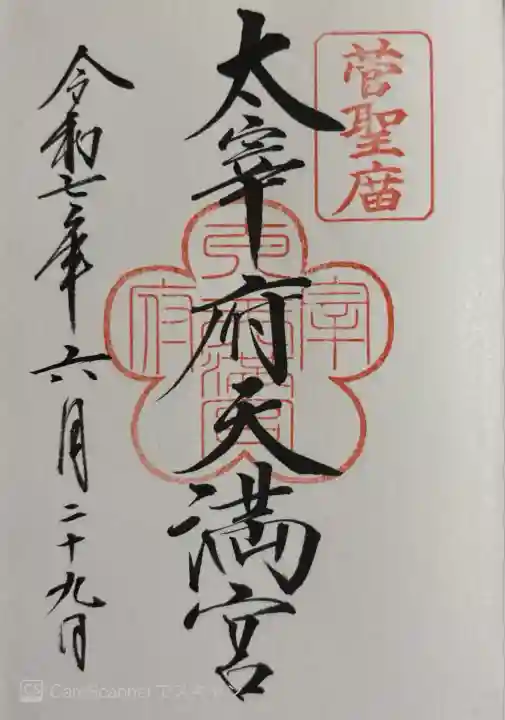 菅聖庿
太宰府天満宮
令和七年六月二十九日
CS CamScanner でスキャン